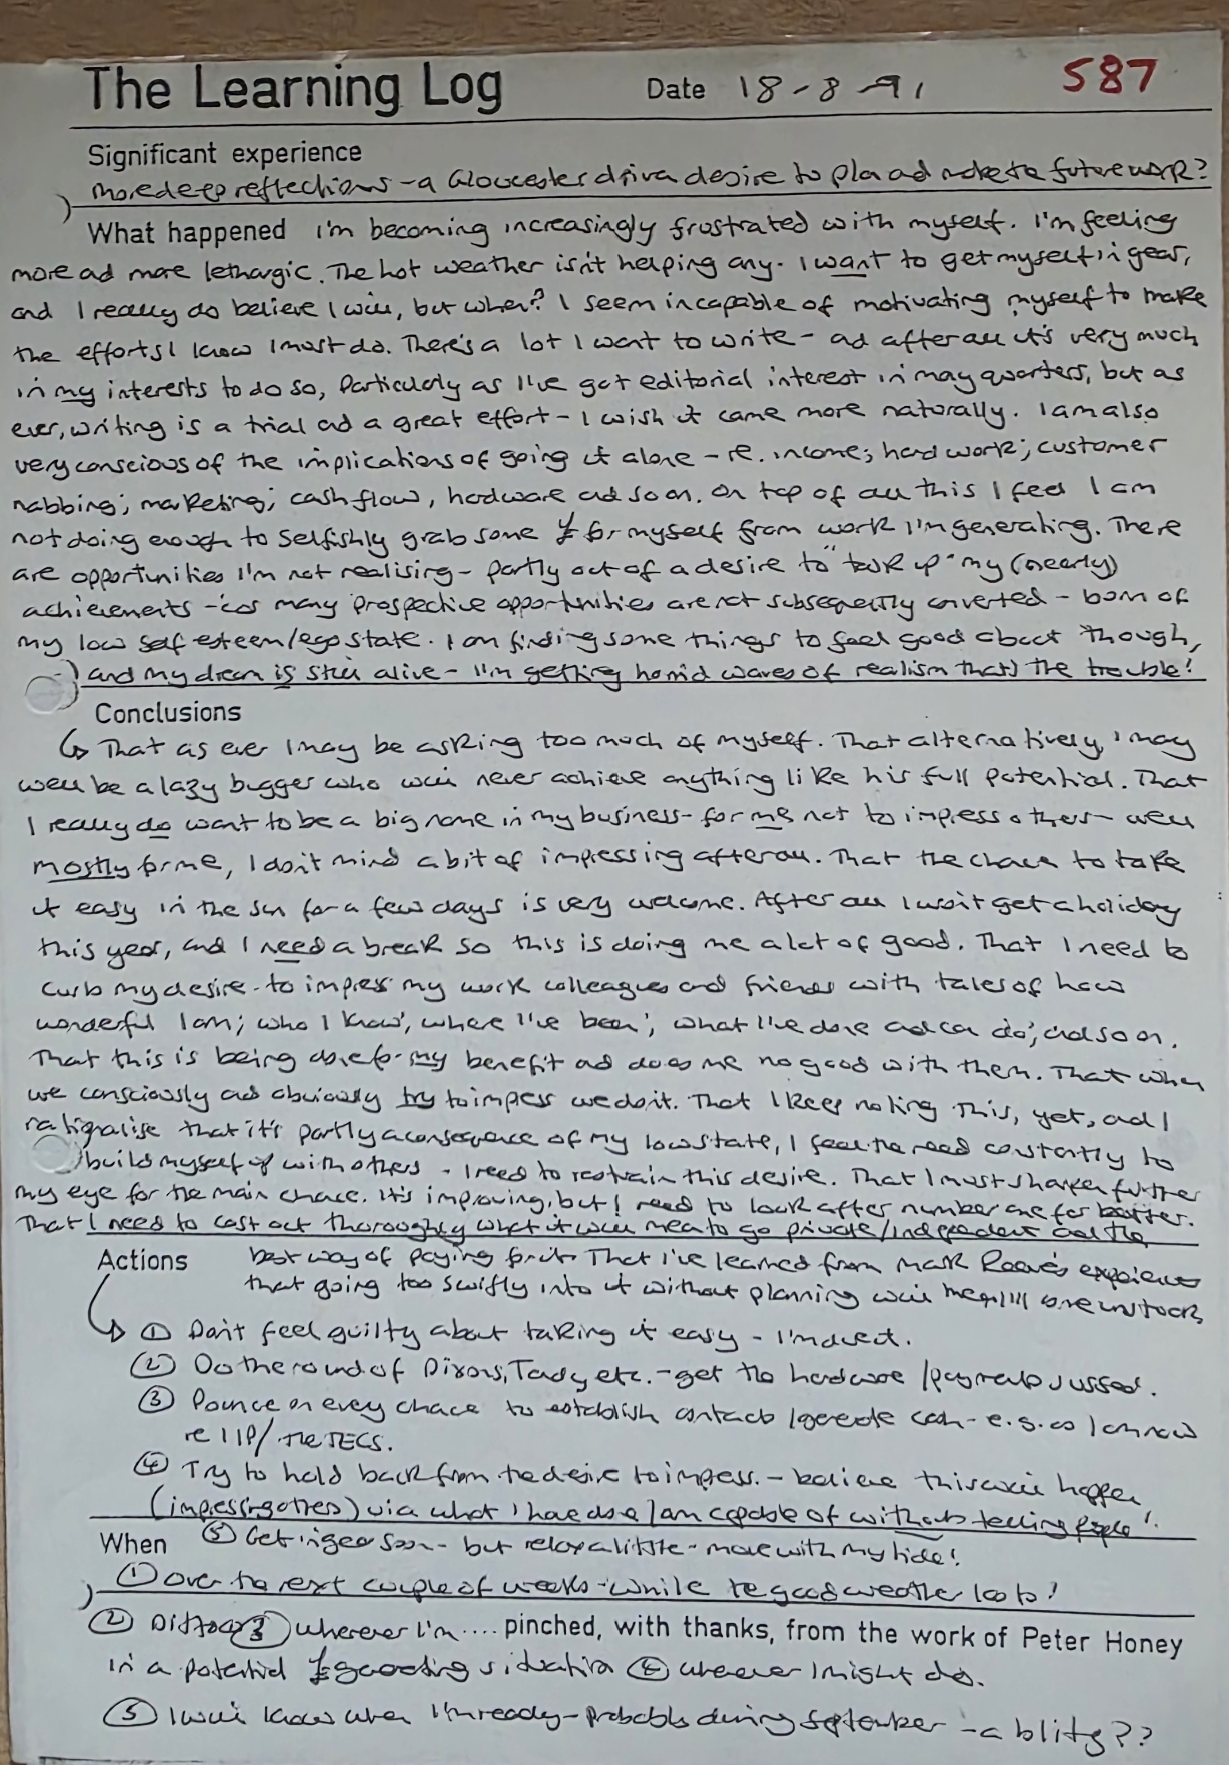 The Learning Log Date 18-8-91 587
Significant experience
More deep reflections - a Gloucester drive a desire to plan ad make the future work?
What happened I'm becoming increasingly frustrated with myself. I'm feeling
more ad more lethargic. The hot weather isn't helping any. I want to get myself in gear,
and I really do believe I will, but when? I seem incapable of motivating myself to make
the efforts I know I must do. There's a lot I want to write - ad after all it's very much
in my interests to do so, particularly as I've got editorial interest in many quarters, but as
ever, writing is a trial ad a great effort - I wish it came more naturally. I am also
very conscious of the implications of going it alone - re. income; hard work; customer
nabbing; marketing; cash flow, hardware ad so on. On top of all this I feel I am
not doing enough to selfishly grab some £ for myself from work I'm generating. There
are opportunities I'm not realising - partly out of a desire to "talk up" my (nearly)
achievements - 'cos many prospective opportunities are not subsequently converted - born of
my low self esteem/ego state. I am finding some things to feel good about though,
and my dream is still alive - I'm getting horrid waves of realism that's the trouble!
Conclusions
↳ That as ever I may be asking too much of myself. That alternatively, I may
well be a lazy bugger who will never achieve anything like his full potential. That
I really do want to be a big name in my business - for me not to impress others - well
mostly for me, I don't mind a bit of impressing after all. That the chance to take
it easy in the sun for a few days is very welcome. After all I won't get a holiday
this year, and I need a break so this is doing me a lot of good. That I need to
curb my desire - to impress my work colleagues and friends with tales of how
wonderful I am; who I 'know', where I've 'been', what I've done ad can do', ad so on.
That this is being done for my benefit ad does me no good with them. That when
we consciously ad obviously try to impress we don't. That I keep noting this, yet, ad I
rationalise that it's partly a consequence of my low state, I feel the need constantly to
build myself up with others - I need to restrain this desire. That I must sharpen further
my eye for the main chance. It's improving, but I need to look after number one far better.
That I need to cost out thoroughly what it will mean to go private/independent and the
Actions best way of paying for it. That I've learned from Mark Reeve's experience
that going too swiftly into it without planning will
① Don't feel guilty about taking it easy - I'm due it.
② Do the round of Dixons, Tandy etc. - get the hardware/payments sussed.
③ Pounce on every chance to establish contacts/generate cash - e.g. as I am now
re IIP/the TECS.
④ Try to hold back from the desire to impress. - believe this will happen
(impressing others) via what I have done/am capable of without telling people!
When ⑤ Get in gear soon - but relax a little - move with my tide!
① Over the next couple of weeks - while the good weather lasts!
② Ditto ③ wherever I'm .... pinched, with thanks, from the work of Peter Honey
in a potential £ generating situation ④ wherever I might do.
⑤ I will know when I'm ready - probably during September - a blitz??